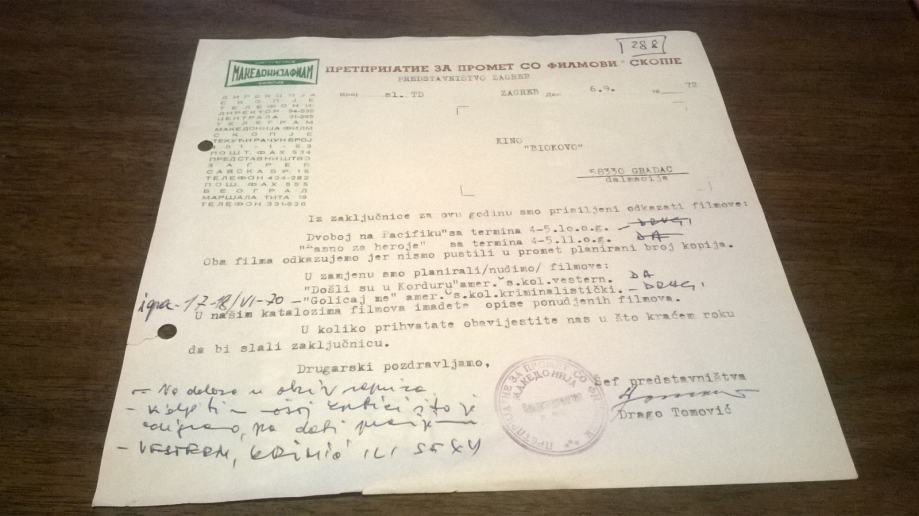 288
МАКЕДОНИЈАФИЛМ
ПРЕТПРИЈАТИЕ ЗА ПРОМЕТ СО ФИЛМОВИ СКОПЈЕ
PREDSTAVNIŠTVO ZAGREB
Број sl. TD ZAGREB Ден 6.9. 19 72
ДИРЕКЦИЈА
СКОПЈЕ
ТЕЛЕФОНИ:
ДИРЕКТОР
ЦЕНТРАЛА
ТЕЛЕГРАМ
МАКЕДОНИЈАФИЛМ
СКОПЈЕ
ТЕКУЋИ РАЧУН БРОЈ
ПОШТ. ФАХ 534
ПРЕДСТАВНИШТВО
ЗАГРЕБ
САВСКА БР. 15
ТЕЛЕФОН
ПОШ. ФАХ 555
БЕОГРАД
МАРШАЛА ТИТА 19
ТЕЛЕФОН
KINO
"BIOKOVO"
58330 GRADAC
dalmacija
Iz zaključnice za ovu godinu smo primiljeni odkazati filmove:
Dvoboj na Pacifiku"sa termina 4-5.10.o.g. –
"Časno za heroje" sa termina 4-5.11.o.g. – DA
Oba filma odkazujemo jer nismo pustili u promet planirani broj kopija.
U zamjenu smo planirali/nudimo/ filmove:
"Došli su u Korduru"amer.š.kol.vestern. DA
igra-17-18/VI-70 – "Golicaj me" amer.š.kol.kriminalistički. – DRUGI
U našim katalozima filmova imadete opise ponudjenih filmova.
U koliko prihvatate obavijestite nas u što kraćem roku
da bi slali zaključnicu.
Drugarski pozdravljamo,
Šef predstavništva
Drago Tomović
– Ne dolaze u obzir repriza
– VESTERN, KRIMIĆ ILI SEXY
ПРЕТПРИЈАТИЕ ЗА ПРОМЕТ СО ФИЛМОВИ
МАКЕДОНИЈА